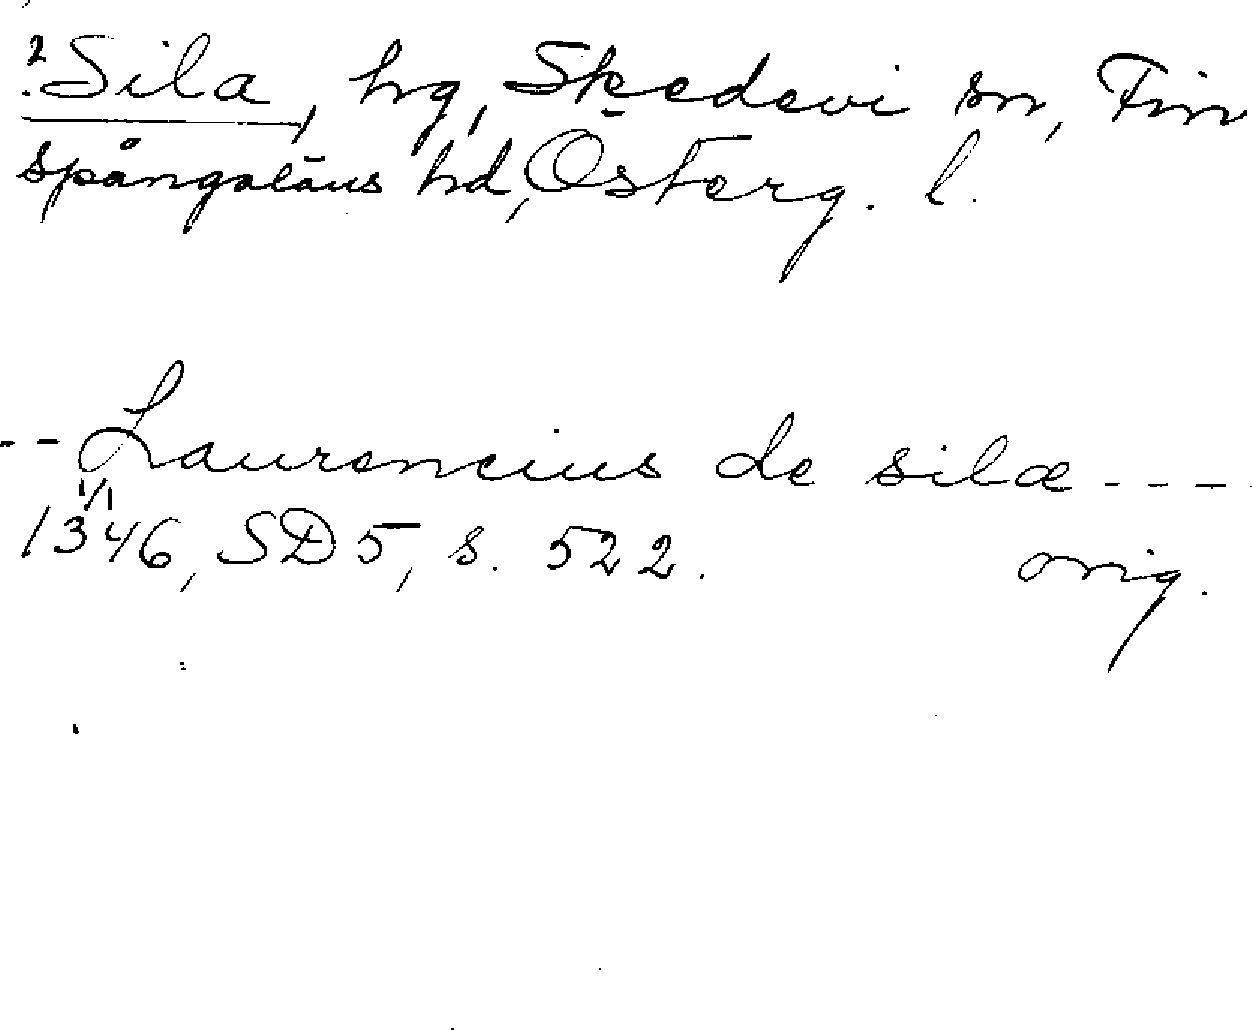 ? Sila, hg, Skedevi sn, Fin
spångaläns hd, Österg. l.
-- Laurencius de silæ ----
1346 1/1, SD 5, s. 522. orig.